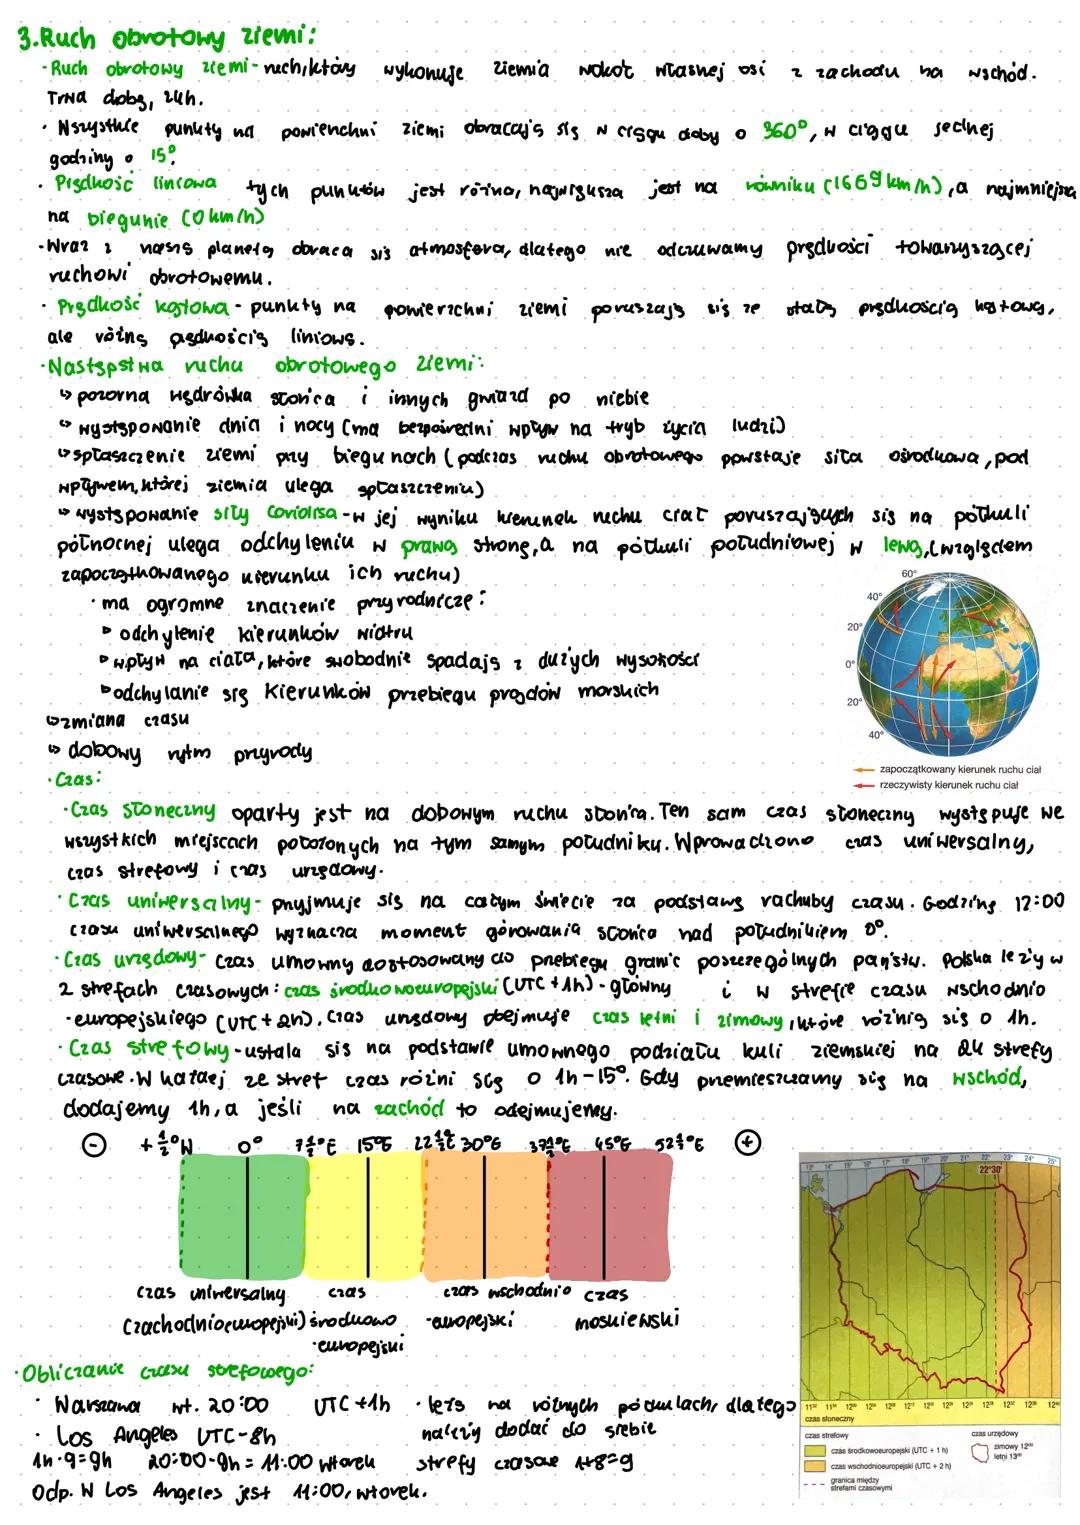 3.Ruch obrotowy ziemi:
·Ruch obrotowy ziemi-ruch, który wykonuje ziemia wokół własnej osi z zachodu na wschód.
Trwa dobę, 24h.
· Wszystkie punkty na powierzchni ziemi obracają się w ciągu doby o 360°, w ciągu jednej
godziny o 15°.
· Prędkość liniowa tych punktów jest różna, największa jest na równiku (1669 km/h), a najmniejsza
na biegunie (0 km/h)
·Wraz z naszą planetą obraca się atmosfera, dlatego nie odczuwamy prędkości towarzyszącej
ruchowi obrotowemu.
· Prędkość kątowa - punkty na powierzchni ziemi poruszają się ze stałą prędkością kątową,
ale różną prędkością liniową.
·Następstwa ruchu obrotowego ziemi:
↳ pozorna wędrówka słońca i innych gwiazd po niebie
↳ występowanie dnia i nocy (ma bezpośredni wpływ na tryb życia ludzi)
↳ spłaszczenie ziemi przy biegunach (podczas ruchu obrotowego powstaje siła ośrodkowa, pod
wpływem, której ziemia ulega spłaszczeniu)
↳ występowanie siły Coriolisa - w jej wyniku kierunek ruchu ciał poruszających się na półkuli
północnej ulega odchyleniu w prawą stronę, a na półkuli południowej w lewą, (względem
zapoczątkowanego kierunku ich ruchu)
· ma ogromne znaczenie przyrodnicze:
▹ odchylenie kierunków wiatru
▹ wpływ na ciała, które swobodnie spadają z dużych wysokości
▹ odchylanie się kierunków przebiegu prądów morskich
↳ zmiana czasu
↳ dobowy rytm przyrody
60°
40°
20°
0°
20°
40°
zapoczątkowany kierunek ruchu ciał
rzeczywisty kierunek ruchu ciał
·Czas:
·Czas słoneczny oparty jest na dobowym ruchu słońca. Ten sam czas słoneczny występuje we
wszystkich miejscach położonych na tym samym południku. Wprowadzono czas uniwersalny,
czas strefowy i czas urzędowy.
· Czas uniwersalny- przyjmuje się na całym świecie za podstawę rachuby czasu. Godzinę 12:00
czasu uniwersalnego wyznacza moment górowania słońca nad południkiem 0°.
·Czas urzędowy- czas umowny dostosowany do przebiegu granic poszczególnych państw. Polska leży w
2 strefach czasowych: czas środkowoeuropejski (UTC + 1h) - główny i w strefie czasu wschodnio
-europejskiego (UTC + 2h). Czas urzędowy obejmuje czas letni i zimowy, które różnią się o 1h.
· Czas strefowy - ustala się na podstawie umownego podziału kuli ziemskiej na 24 strefy
czasowe. W każdej ze stref czas różni się o 1h - 15°. Gdy przemieszczamy się na wschód,
dodajemy 1h, a jeśli na zachód to odejmujemy.
⊖ +½°W 0° 7½°E 15°E 22½°E 30°E 37½°E 45°E 52½°E ⊕
czas uniwersalny czas czas wschodnio czas
(zachodnioeuropejski) środkowo -europejski moskiewski
-europejski
·Obliczanie czasu strefowego:
· Warszawa wt. 20:00 UTC +1h · leżą na różnych półkulach, dlatego
· Los Angeles UTC - 8h należy dodać do siebie
1h·9=9h 20:00-9h = 11:00 wtorek strefy czasowe 1+8=9
Odp. W Los Angeles jest 11:00, wtorek.
13° 14° 15° 16° 17° 18° 19° 20° 21° 22° 23° 24° 25°
22°30'
czas słoneczny
czas strefowy
czas środkowoeuropejski (UTC + 1 h)
czas wschodnioeuropejski (UTC + 2 h)
granica między
strefami czasowymi
czas urzędowy
zimowy 12⁰⁰
letni 13⁰⁰